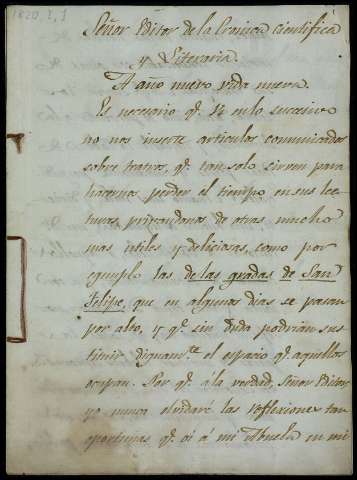 1820, I, 1
Señor Editor de la Cronica cientifica
y Literaria.
A año nuevo vida nueva.
Es necesario q.e V. en lo succesivo
no nos inserte articulos comunicados
sobre teatros, q.e tan solo sirven para
hacernos perder el tiempo en sus lec
turas, privandonos de otras mucho
mas utiles y deliciosas, como por
egemplo las de las gradas de San
Felipe, que en algunos dias se pasan
por alto, y q.e sin duda podrian sus
tituir dignam.te el espacio q.e aquellos
ocupan. Por q.e á la verdad, Señor Editor,
yo nunca olvidaré las reflexiones tan
oportunas q.e oí á mi Abuela en mi